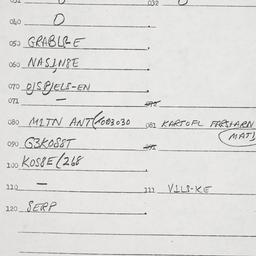 040 O
050 GRABLR-E
060 NASINSE
070 OJSBJELS-EN
071 –
080 MITN ANT(003030 081 KARTOFL FARSHARN
MATJ
090 G3KOSST
100 KOSSE/268
110 – 111 VILS-KE
120 SERP